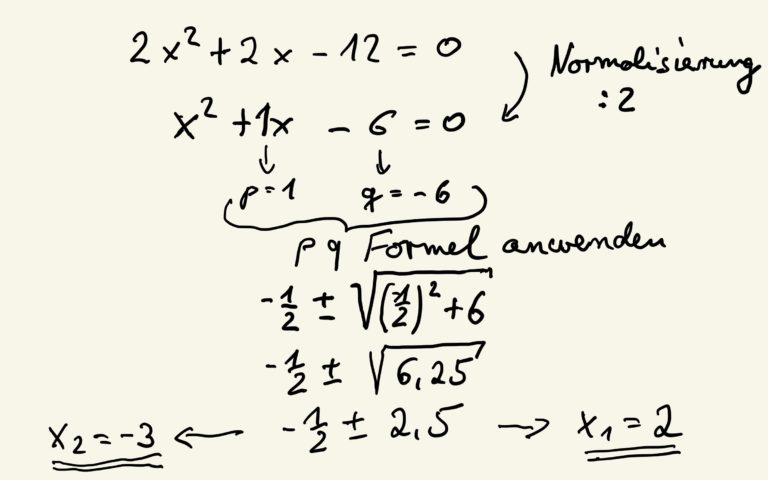 2x² + 2x - 12 = 0
Normalisierung
:2
x² + 1x - 6 = 0
p = 1 q = -6
pq Formel anwenden
-1/2 ± √((1/2)² + 6)
-1/2 ± √6,25
x₂ = -3 ← -1/2 ± 2,5 → x₁ = 2